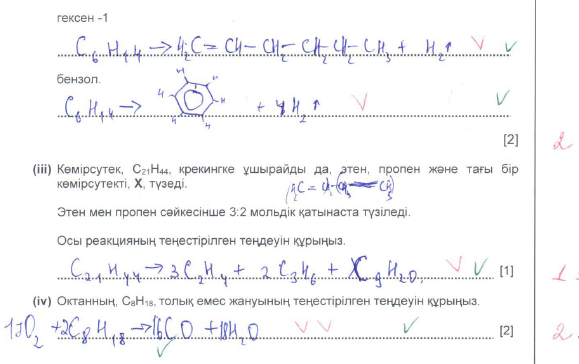 гексен -1
C₆H₁₄ → H₂C = CH – CH₂ – CH₂ CH₂ – CH₃ + H₂↑
бензол.
C₆H₁₄ → H H H H H H + 4H₂↑
[2]
2
(iii) Көмірсутек, C₂₁H₄₄, крекингке ұшырайды да, этен, пропен және тағы бір
көмірсутекті, X, түзеді.
Этен мен пропен сәйкесінше 3:2 мольдік қатынаста түзіледі.
Осы реакцияның теңестірілген теңдеуін құрыңыз.
C₂₁H₄₄ → 3C₂H₄ + 2C₃H₆ + XC₉H₂₀. [1]
1
(iv) Октанның, C₈H₁₈, толық емес жануының теңестірілген теңдеуін құрыңыз.
17O₂ + 2C₈H₁₈ → 16CO + 18H₂O [2]
2